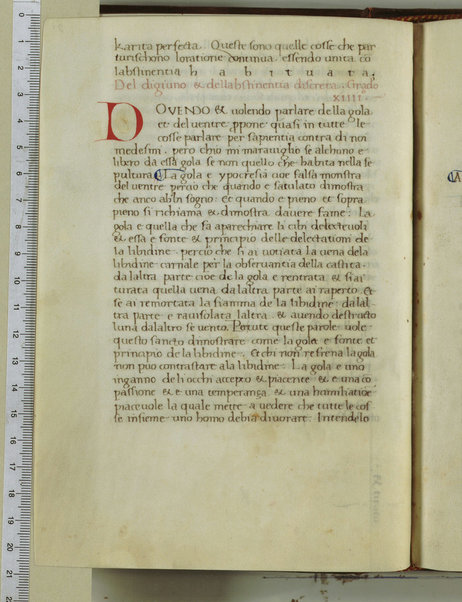 karita perfecta. Queste sono quelle cosse che par
turischono loratione continua essendo unita co
labstinentia h a b i t u a t a.
Del digiuno & dellabstinentia discreta. Grado
XIIII.
DOVENDO & uolendo parlare della gola
et del uentre propone quasi in tutte le
cosse parlare per sapientia contra di noi
medesmi. pero chio mi marauiglio se alchuno e
libero da essa gola se non quello che habita nella se
pultura. La gola e ypocresia cioe falsa monstra
del uentre percio che quando e satulato dimostra
che anco abia sogno: et quando e pieno et sopra
pieno si richiama & dimostra dauere fame: La
gola e quella che fa aparechiare li cibi delecteuoli
& essa e fonte & principio delle delectationi de
la libidine. percio che si ai uoitata la uena dela
libidine carnale per la obseruantia della castita.
da laltra parte cioe de la gola e rentrata. & si ai
turata quella uena dalaltra parte ai raperto. et
se ai remortata la fiamma de la libidine: da lal
tra parte e rauisolata laltra. & auendo destructo
luna dalaltro se uento. Potute queste parole uole
questo sancto dimostrare come la gola e fonte et
principio de la libidine. Et chi non refrena la gola
non puo contrastare ala libidine: La gola e uno
inganno de li occhi accepto & piacente & e una co
passione & e una temperanza. & una humiliatioe
piaceuole la quale mette a uedere che tutte le cos
se insieme uno homo debia diuorare. Intendelo